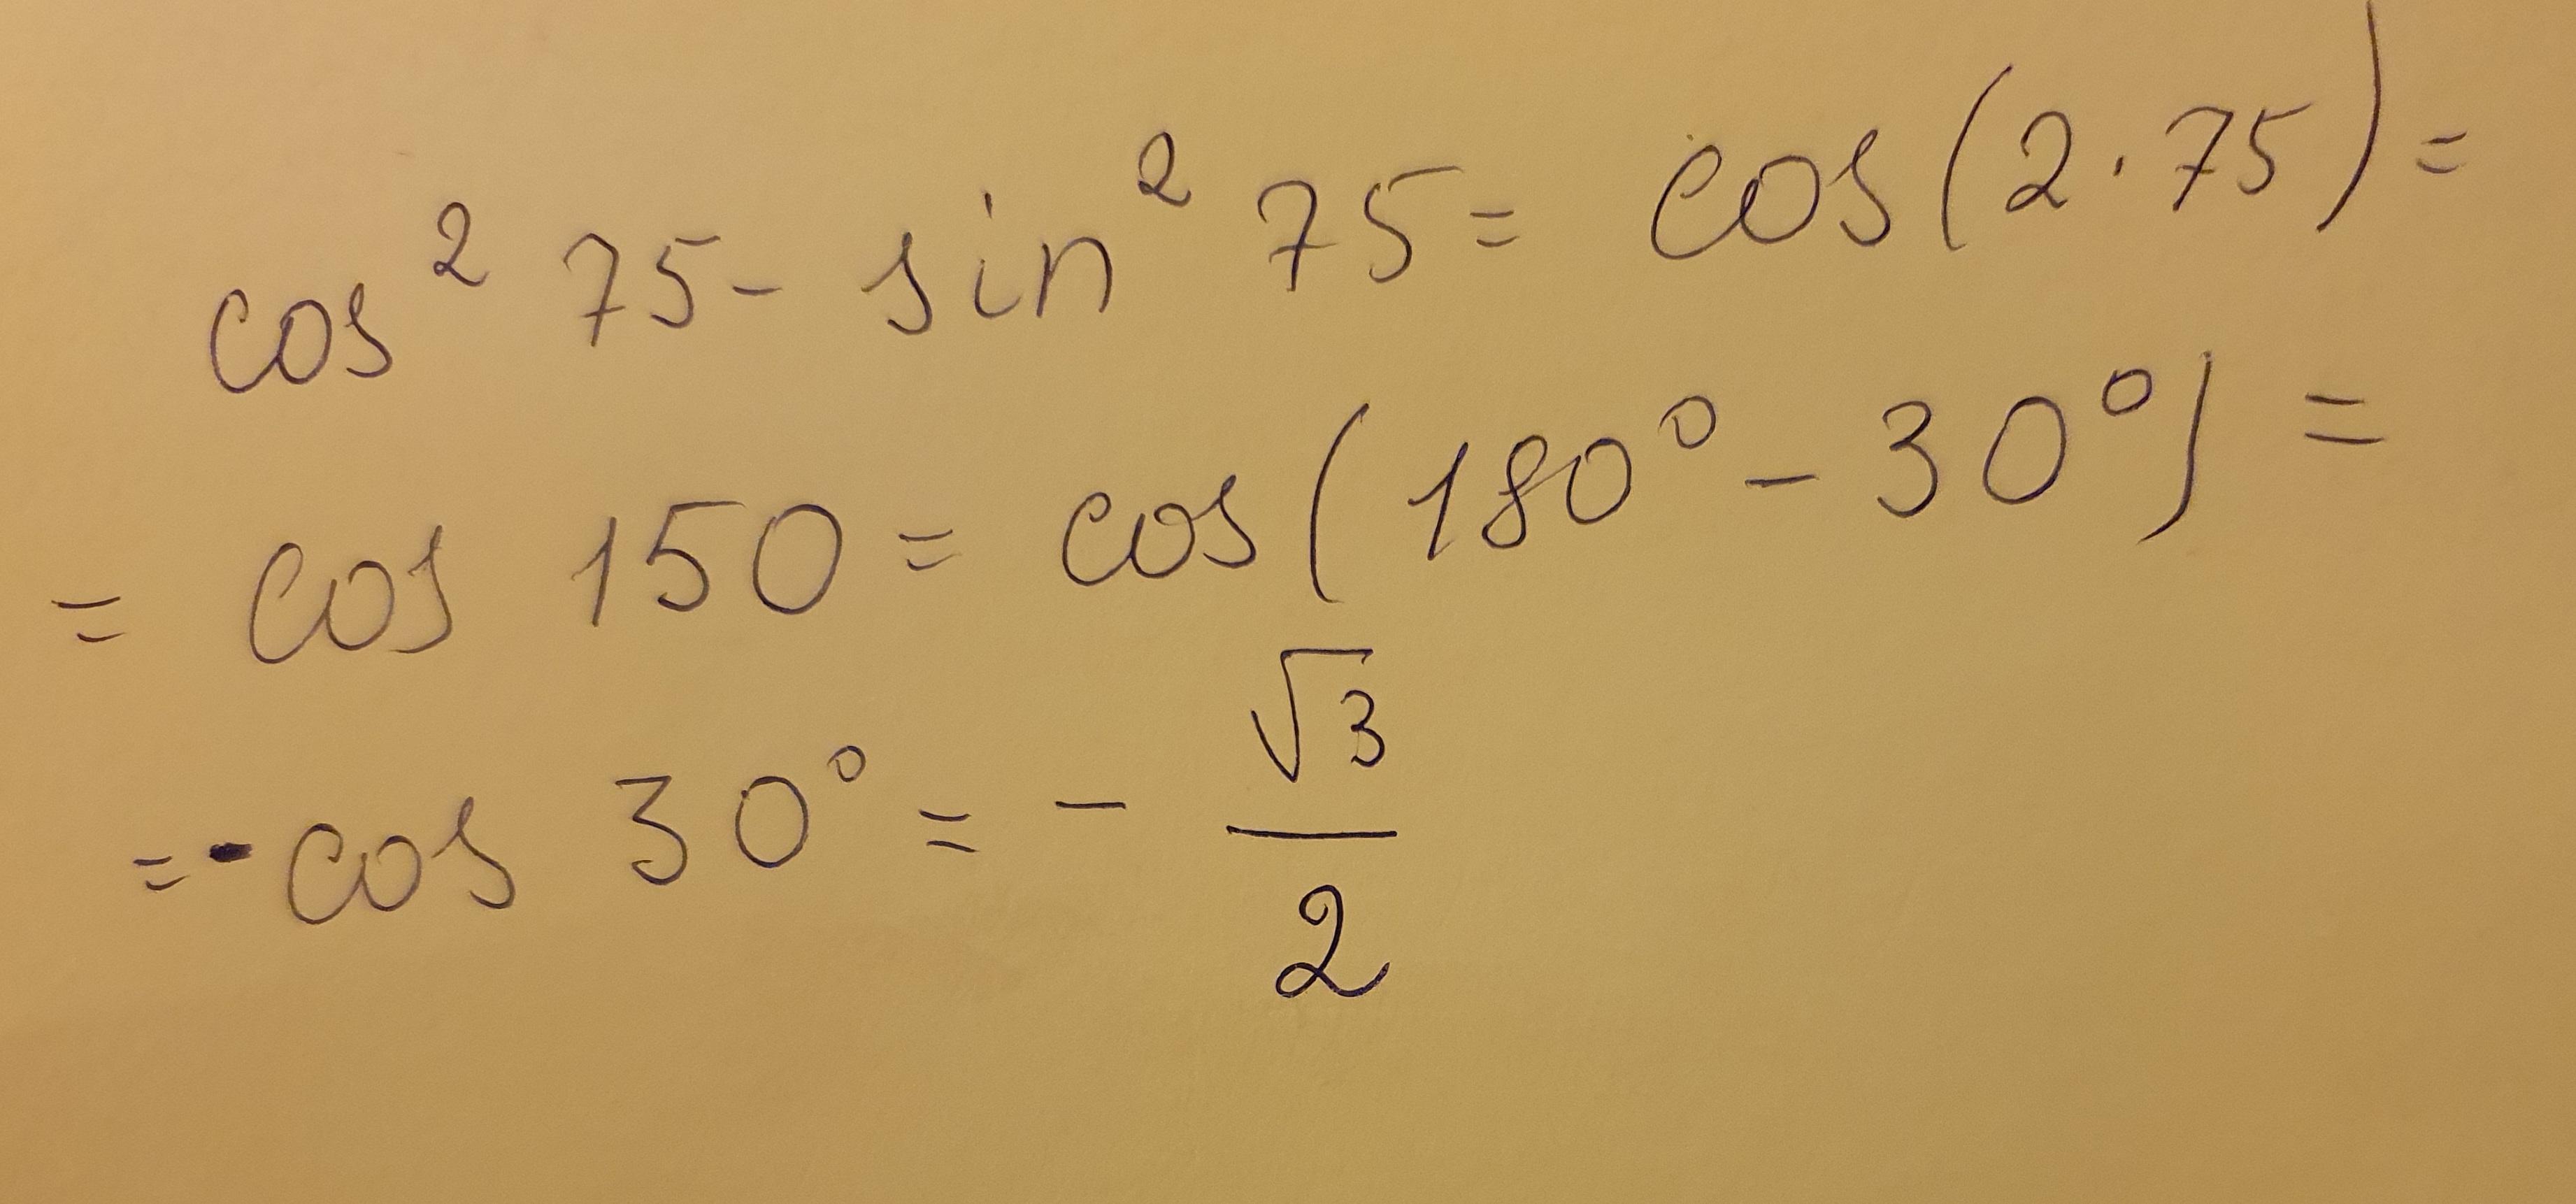 cos² 75 - sin² 75 = cos(2 · 75) =
= cos 150 = cos(180° - 30°) =
= - cos 30° = - √3/2